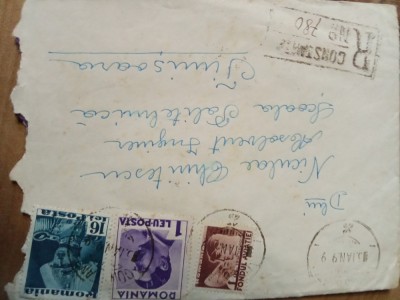 R CONSTANTA
No 780
Dlui
Nicolae Chintescu
Absolvent Inginer
Scoala Politehnică
Timișoara
16 L
POSTA
Romania
1 LEU POSTA
ROMANIA
FONDUL AVIAȚIEI
JAN 9